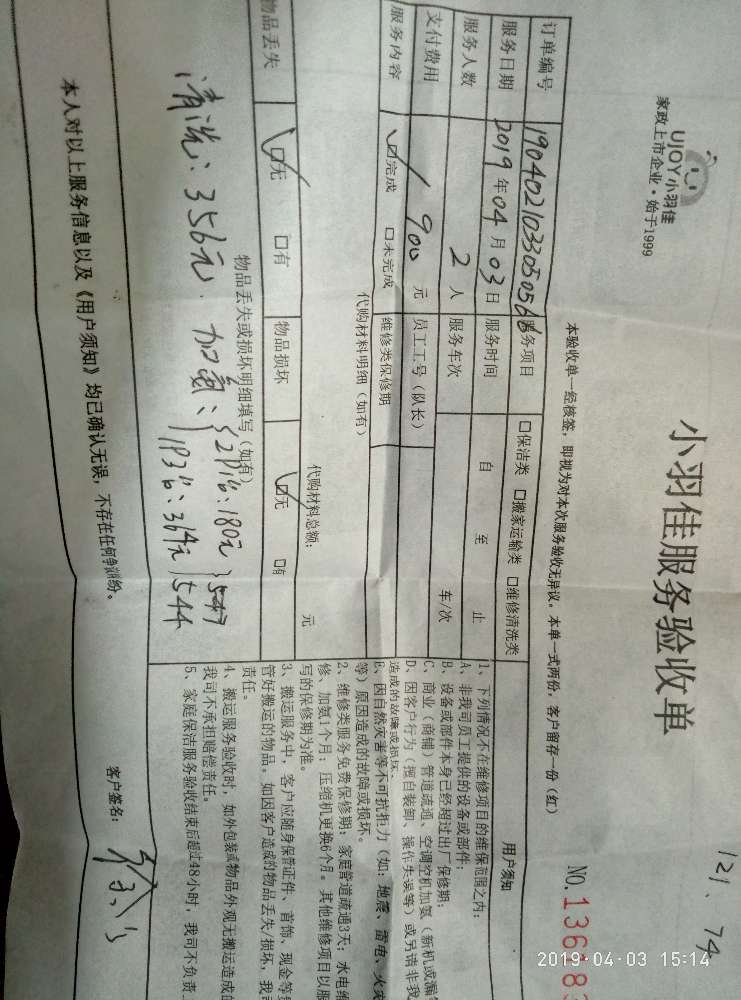 UJOY小羽佳
家政上市企业·始于1999
小羽佳服务验收单
121、74
本验收单一经核签,即视为对本次服务验收无异议。本单一式两份,客户留存一份(红)
NO.136183
订单编号 服务项目 □保洁类 □搬家运输类 □维修清洗类
服务日期 2019年04月03日 服务时间 自 至 止
服务人数 2人 服务车次 车/次
支付费用 900元 员工工号(队长)
服务内容 ☑完成 □未完成 维修类保修期
代购材料明细(如有)
代购材料总额: 元
物品丢失 ☑无 □有 物品损坏 ☑无 □有
物品丢失或损坏明细填写(如有)
清洗:356元. 加氨:
2P1台:180元
1P3台:364元
544
用户须知
1、下列情况不在维修项目的维保范围之内:
A、非我司员工提供的设备或部件;
B、设备或部件本身已经超过出厂保修期;
C、商业(商铺)管道疏通、空调空机加氨(新机或漏
D、因客户行为(擅自装卸、操作失误等)或另请非我
造成的故障或损坏.
E、因自然灾害等不可抗拒力(如:地震、雷电、火灾
等)原因造成的故障或损坏。
2、维修类服务免费保修期:家庭管道疏通3天;水电维
修、加氨1个月;压缩机更换6个月。其他维修项目以服
写的保修期为准。
3、搬运服务中,客户应随身保管证件、首饰、现金等
管好搬运的物品。如因客户造成的物品丢失/损坏,我
责任。
4、搬运服务验收时,如外包装或物品外观无搬运造成的
我司不承担赔偿责任。
5、家庭保洁服务验收结束后超过48小时,我司不负责
本人对以上服务信息以及《用户须知》均已确认无误,不存在任何争议纠纷。
客户签名:
2019-04-03 15:14